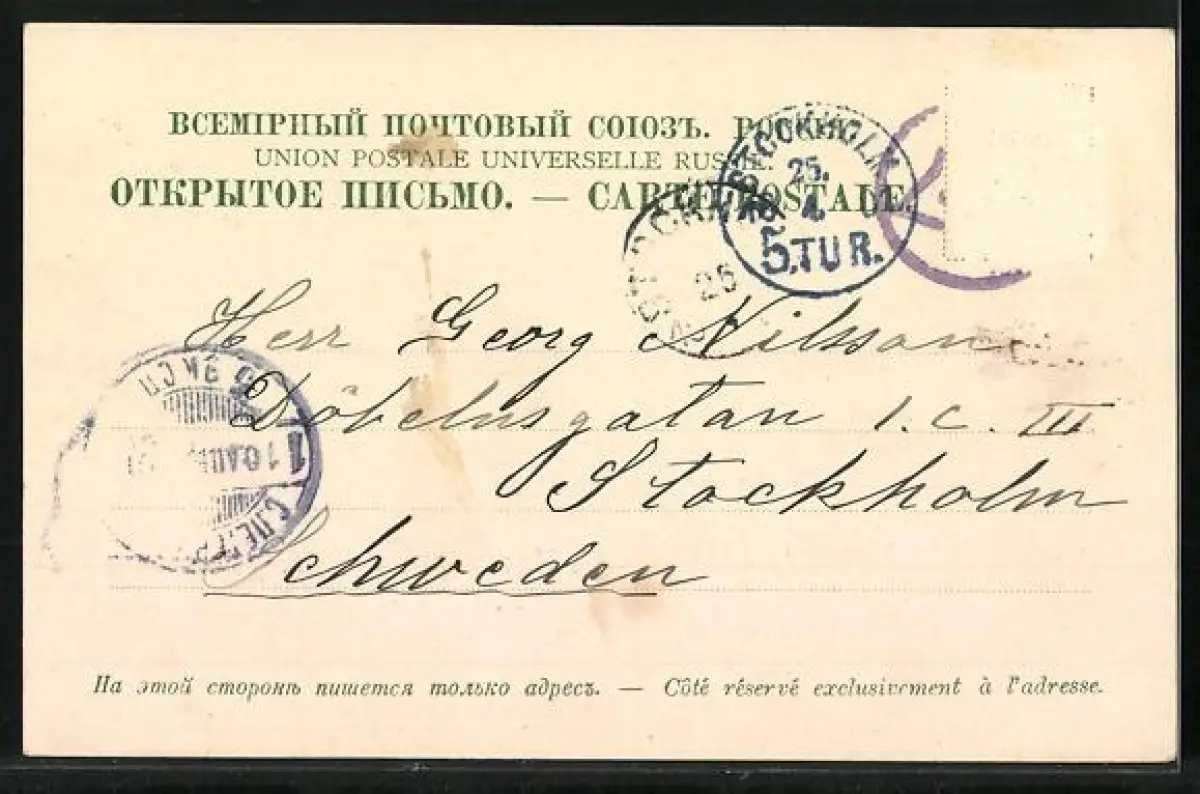 ВСЕМІРНЫЙ ПОЧТОВЫЙ СОЮЗЪ. РОССІЯ.
UNION POSTALE UNIVERSELLE RUSSIE.
ОТКРЫТОЕ ПИСЬМО. — CARTE POSTALE.
STOCKHOLM
25.
4.
5.TUR.
26
Herr Georg Nilsson
Döbelnsgatan 1. C. III
Stockholm
Schweden
1
На этой сторонѣ пишется только адресъ. — Côté réservé exclusivement à l'adresse.